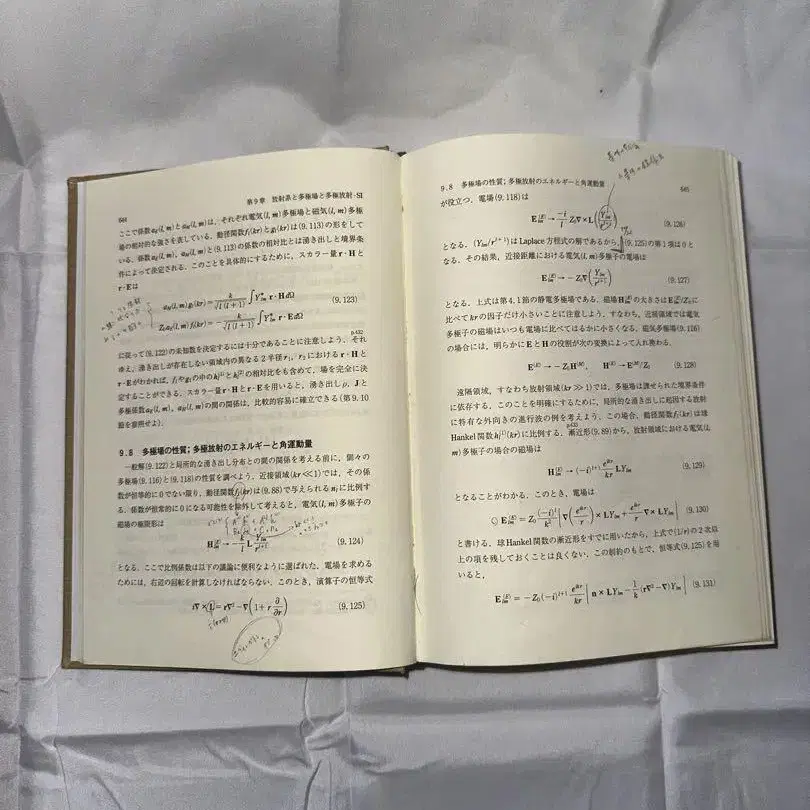 644
第9章　放射系と多極場と多極放射-SI
ここで係数a_E(l, m)とa_M(l, m)は，それぞれ電気(l, m)多極場と磁気(l, m)多極
場の相対的な強さを表している．動径関数f_l(kr)とg_l(kr)は(9.113)の形をして
いる．係数a_E(l, m)，a_M(l, m)と(9.113)の係数の相対比とは湧き出しと境界条
件によって決定される．このことを具体的にするために，スカラー量r·Hと
r·Eは
a_M(l, m)g_l(kr) = k/√(l(l+1)) ∫Y*_lm r·H dΩ
(9.123)
Z_0a_E(l, m)f_l(kr) = −k/√(l(l+1)) ∫Y*_lm r·E dΩ
p.432
に従って(9.122)の未知数を決定するには十分であることに注意しよう．それ
ゆえ，湧き出しが存在しない領域内の異なる2半径r_1，r_2におけるr·Hと
r·Eがわかれば，f_lやg_lの中のh_l^(1)とh_l^(2)の相対比をも含めて，場を完全に決
定することができる．スカラー量r·Hとr·Eを用いると，湧き出しρ，Jと
多極係数a_E(l, m)，a_M(l, m)の間の関係は，比較的容易に確立できる(第9.10
節を参照せよ)．
9.8　多極場の性質；多極放射のエネルギーと角運動量
一般解(9.122)と局所的な湧き出し分布との間の関係を考える前に，個々の
多極場(9.116)と(9.118)の性質を調べよう．近接領域(kr≪1)では，その係
数が恒等的に0でない限り，動径関数f_l(kr)は(9.88)で与えられるn_lに比例す
る．係数が恒常的に0になる可能性を除外して考えると，電気(l, m)多極子の
磁場の極限形は
H_lm^(E) → −k/l L Y_lm/r^(l+1)
(9.124)
となる．ここで比例係数は以下の議論に便利なように選ばれた．電場を求める
ためには，右辺の回転を計算しなければならない．このとき，演算子の恒等式
i∇×L = r∇² − ∇(1 + r ∂/∂r)
(9.125)
9.8　多極場の性質；多極放射のエネルギーと角運動量
645
が役立つ．電場(9.118)は
E_lm^(E) → −i/l Z_0∇×L(Y_lm/r^(l+1))
(9.126)
となる．(Y_lm/r^(l+1))はLaplace方程式の解であるから，(9.125)の第1項は0と
なる．その結果，近接距離における電気(l, m)多極子の電場は
E_lm^(E) → −Z_0∇(Y_lm/r^(l+1))
(9.127)
となる．上式は第4.1節の静電多極場である．磁場H_lm^(E)の大きさはE_lm^(E)/Z_0に
比べてkrの因子だけ小さいことに注意しよう．すなわち，近接領域では電気
多極子の磁場はいつも電場に比べてはるかに小さくなる．磁気多極場(9.116)
の場合には，明らかにEとHの役割が次の変換によって入れ換わる．
E^(E) → −Z_0H^(M),　H^(E) → E^(M)/Z_0
(9.128)
遠隔領域，すなわち放射領域(kr≫1)では，多極場は課せられた境界条件
に依存する．このことを明確にするために，局所的な湧き出しに起因する放射
に特有な外向きの進行波の例を考えよう．この場合，動径関数f_l(kr)は球
p.433
Hankel関数h_l^(1)(kr)に比例する．漸近形(9.89)から，放射領域における電気(l,
m)多極子の場合の磁場は
H_lm^(E) → (−i)^(l+1) e^(ikr)/kr LY_lm
(9.129)
となることがわかる．このとき，電場は
E_lm^(E) = Z_0 (−i)^l/k² [∇(e^(ikr)/r) × LY_lm + e^(ikr)/r ∇×LY_lm]
(9.130)
と書ける．球Hankel関数の漸近形をすでに用いたから，上式で(1/r)の2次以
上の項を残しておくことは良くない．この制約のもとで，恒等式(9.125)を用
いると，
E_lm^(E) = −Z_0(−i)^(l+1) e^(ikr)/kr [n×LY_lm − 1/k (r∇²−∇)Y_lm]
(9.131)